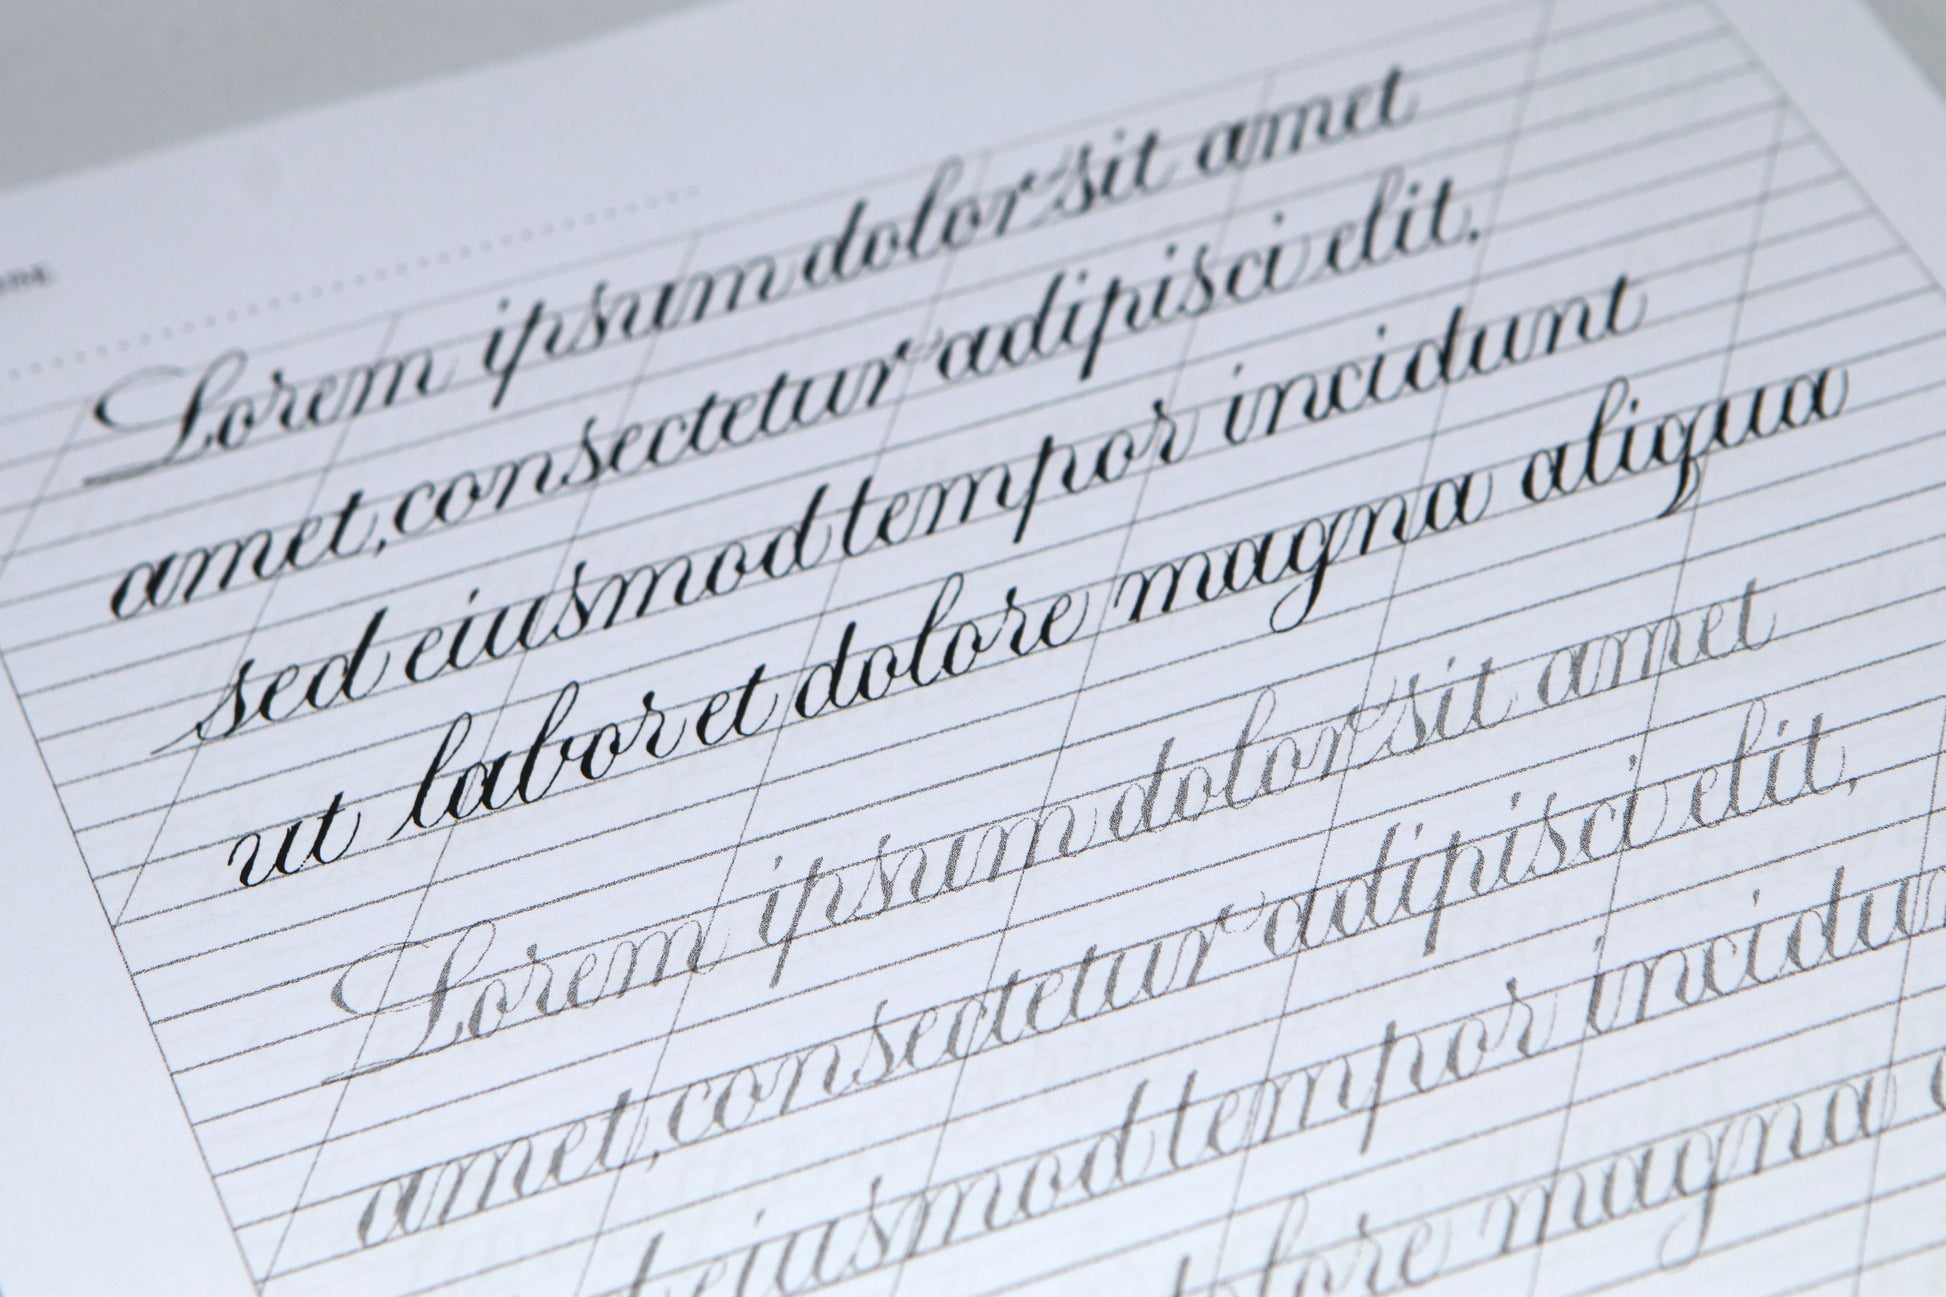 Lorem ipsum dolor sit amet
amet, consectetur adipisci elit,
sed eiusmod tempor incidunt
ut labor et dolore magna aliqua
Lorem ipsum dolor sit amet
amet, consectetur adipisci elit,
eiusmod tempor
dolore magna